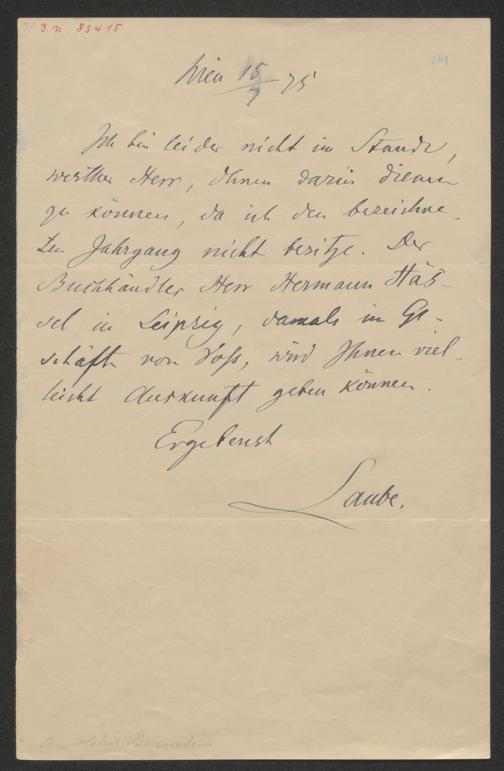 J.N. 83415
161
Wien 15/7 75
Ich bin leider nicht im Stande,
werther Herr, Ihnen darin dienen
zu können, da ich den bezeichne-
ten Jahrgang nicht besitze. Der
Buchhändler Herr Hermann Häs-
sel in Leipzig, damals im Ge-
schäft von Voss, wird Ihnen viel-
leicht Auskunft geben können.
Ergebenst
Laube.
An Bernstein